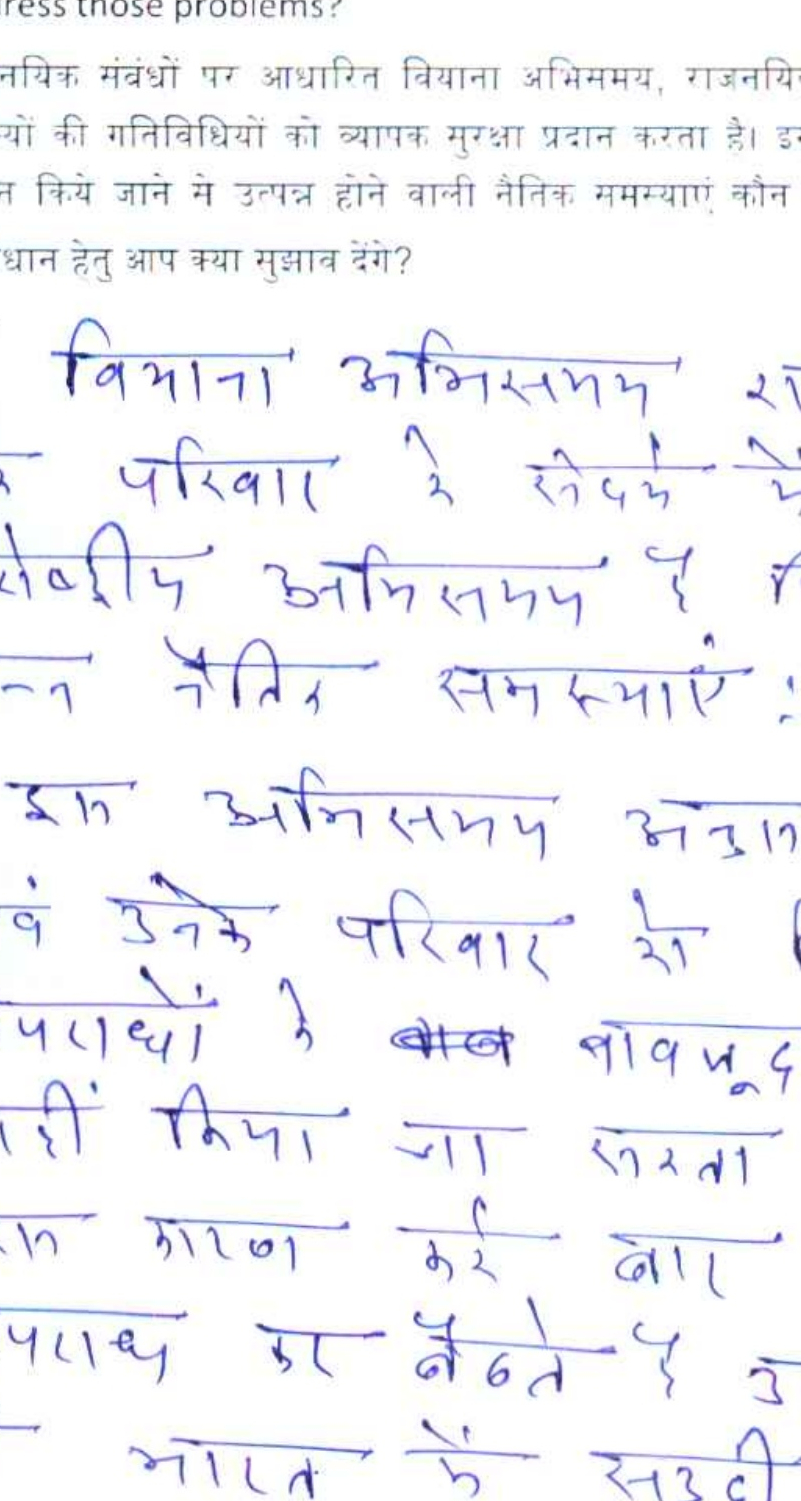 ress those problems?
नयिक संबंधों पर आधारित वियाना अभिसमय, राजनयि
यों की गतिविधियों को व्यापक सुरक्षा प्रदान करता है। इ
न किये जाने से उत्पन्न होने वाली नैतिक समस्याएं कौन
धान हेतु आप क्या सुझाव देंगे?
वियाना अभिसमय रा
परिवार के संदर्भ में
अभिसमय है
नैतिक समस्याएं :
इस अभिसमय अनुसा
वं उनके परिवार को
पराधों के बावजूद
हीं किया जा सकता
कारण कई बार
पराध कर बैठते है उ
भारत में सउदी